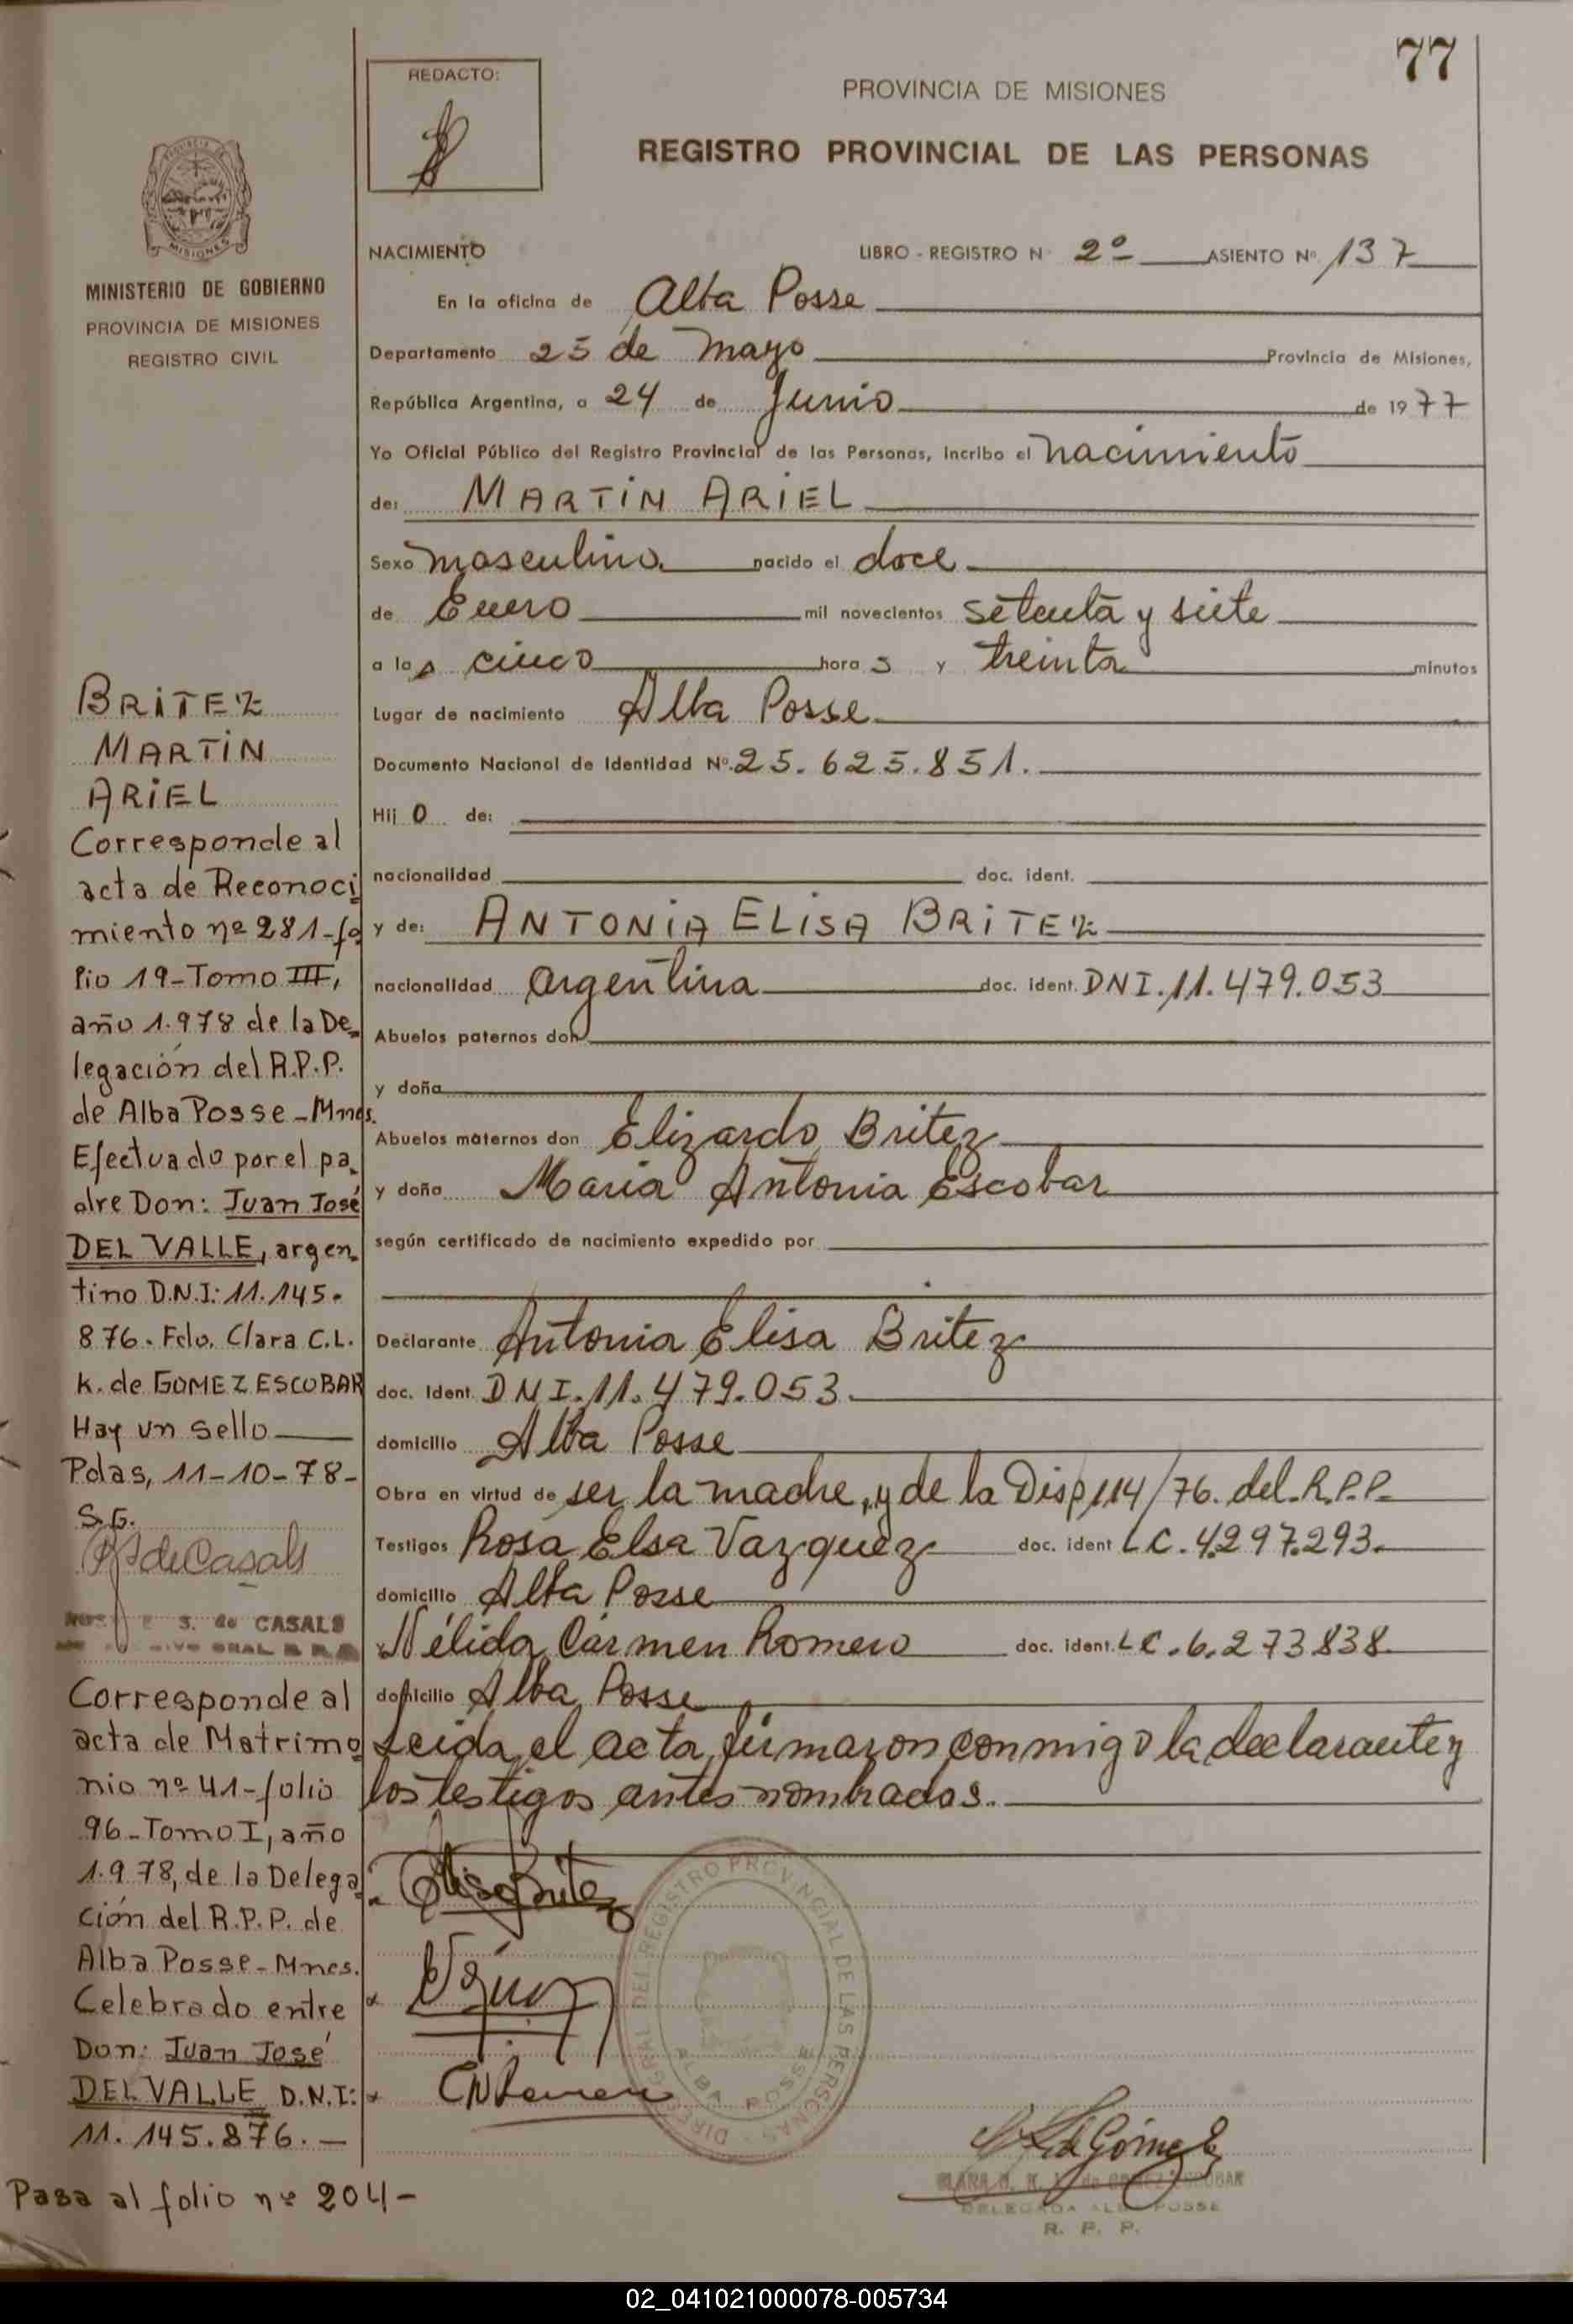 77
REDACTO:
PROVINCIA DE MISIONES
REGISTRO PROVINCIAL DE LAS PERSONAS
MISIONES
MINISTERIO DE GOBIERNO
PROVINCIA DE MISIONES
REGISTRO CIVIL
NACIMIENTO LIBRO - REGISTRO Nº 2º ASIENTO Nº 137
En la oficina de Alba Posse
Departamento 25 de Mayo Provincia de Misiones,
República Argentina, a 24 de Junio de 1977
Yo Oficial Público del Registro Provincial de las Personas, incribo el nacimiento
de: MARTIN ARIEL
Sexo masculino nacido el doce
de Enero mil novecientos setenta y siete
a las cinco horas y treinta minutos
Lugar de nacimiento Alba Posse
Documento Nacional de Identidad Nº 25.625.851.
Hijo de:
nacionalidad doc. ident.
y de: ANTONIA ELISA BRITEZ
nacionalidad argentina doc. ident. DNI.11.479.053
Abuelos paternos don
y doña
Abuelos maternos don Elizardo Britez
y doña Maria Antonia Escobar
según certificado de nacimiento expedido por
Declarante Antonia Elisa Britez
doc. Ident. DNI.11.479.053.
domicilio Alba Posse
Obra en virtud de ser la madre, y de la Disp 114/76. del R.P.P.
Testigos Rosa Elsa Vazquez doc. ident LC.4.297.293.
domicilio Alba Posse
y Nélida Carmen Romero doc. ident. LC.6.273838.
domicilio Alba Posse
Leida el acta, firmaron conmigo la declarante y
los testigos antes nombrados.
BRITEZ
MARTIN
ARIEL
Corresponde al
acta de Reconoci
miento nº 281-fo
lio 19-Tomo III,
año 1.978 de la De
legación del R.P.P.
de Alba Posse-Mnes.
Efectuado por el pa
dre Don: Juan José
DEL VALLE, argen
tino D.N.I: 11.145.
876. Fdo. Clara C.L.
K. de GOMEZ ESCOBAR
Hay un sello
Pdas, 11-10-78-
S.G.
de Casals
S. de CASALS
Corresponde al
acta de Matrimo
nio nº 41-folio
96-Tomo I, año
1.978, de la Delega
ción del R.P.P. de
Alba Posse-Mnes.
Celebrado entre
Don: Juan José
DEL VALLE D.N.I:
11.145.876.-
Pasa al folio nº 204-
Elisa Britez
DEL REGISTRO PROVINCIAL DE LAS PERSONAS
ALBA POSSE
de Gómez
DELEGADA ALBA POSSE
R. P. P.
02_041021000078-005734